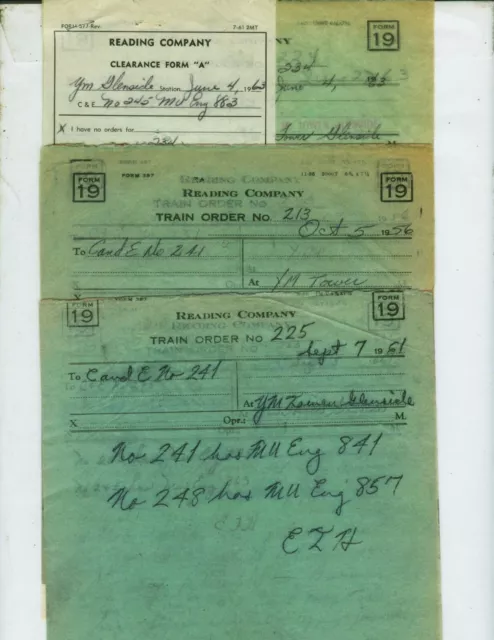 FORM 577 Rev. 7-61 2MT
READING COMPANY
CLEARANCE FORM "A"
Ym Glenside Station June 4, 1963
C&E. No 245 MU Eng 883
X I have no orders for
234
FORM
19
234
June 4, 63
Tower Glenside
M
FORM
19
FORM 387
READING COMPANY
FORM
19
TRAIN ORDER NO. 213
Oct 5 1956
To C and E No 241
At YM Tower
X
FORM
19
FORM 387
READING COMPANY
FORM
19
TRAIN ORDER NO 225
Sept 7 1961
To C and E No 241
At YM Glenside
X Opr.: M.
No 241 has MU Eng 841
No 248 has MU Eng 857
E I H